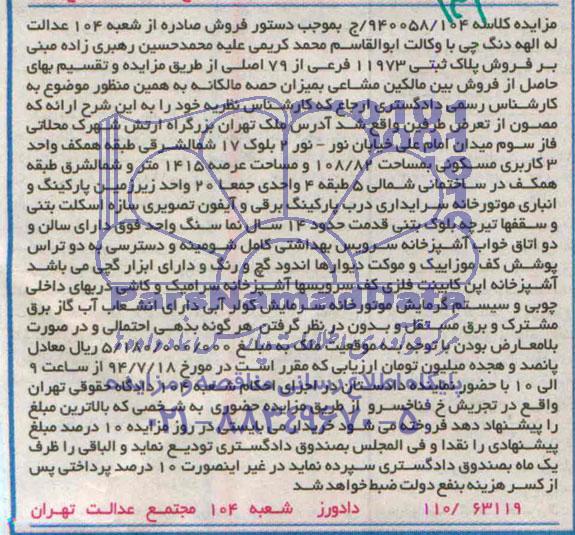 مزایده کلاسه ۹۴۰۰۵۸/۱۰۴/ج بموجب دستور فروش صادره از شعبه ۱۰۴ عدالت
له الهه دنگ چی با وکالت ابوالقاسم محمد کریمی علیه محمدحسین رهبری زاده مبنی
بر فروش پلاک ثبتی ۱۱۹۷۳ فرعی از ۷۹ اصلی از طریق مزایده و تقسیم بهای
حاصل از فروش بین مالکین مشاعی بمیزان حصه مالکانه به همین منظور موضوع به
کارشناس رسمی دادگستری ارجاع که کارشناس نظریه خود را به این شرح ارائه که
مصون از تعرض طرفین واقع شد آدرس ملک تهران بزرگراه ارتش شهرک محلاتی
فاز سوم میدان امام علی خیابان نور - نور ۲ بلوک ۱۷ شمالشرقی طبقه همکف واحد
۳ کاربری مسکونی بمساحت ۱۰۸/۸۲ و مساحت عرصه ۱۴۱۵ متر و شمالشرق طبقه
همکف در ساختمانی شمالی ۵ طبقه ۴ واحدی جمعا ۲۰ واحد زیرزمین پارکینگ و
انباری موتورخانه سرایداری درب پارکینگ برقی و آیفون تصویری سازه اسکلت بتنی
و سقفها تیرچه بلوک بتنی قدمت حدود ۱۴ سال نما سنگ واحد فوق دارای سالن و
دو اتاق خواب آشپزخانه سرویس بهداشتی کامل شومینه و دسترسی به دو تراس
پوشش کف موزاییک و موکت دیوارها اندود گچ و رنگ و دارای ابزار گچی می باشد
آشپزخانه اپن کابینت فلزی کف سرویسها آشپزخانه سرامیک و کاشی دربهای داخلی
چوبی و سیستم گرمایش موتورخانه سرمایش کولر آبی دارای انشعاب آب گاز برق
مشترک و برق مستقل و بدون در نظر گرفتن هر گونه بدهی احتمالی و در صورت
بلامعارض بودن با توجه به موقعیت ملک به مبلغ ۵/۱۸۰/۰۰۰/۰۰۰ ریال معادل
پانصد و هجده میلیون تومان ارزیابی که مقرر است در مورخ ۹۴/۷/۱۸ از ساعت ۹
الی ۱۰ با حضور نماینده دادستان در اجرای احکام شعبه ۱۰۴ دادگاه حقوقی تهران
واقع در تجریش خ فناخسرو از طریق مزایده حضوری به شخصی که بالاترین مبلغ
را پیشنهاد دهد فروخته می شود خریدار می بایستی در روز مزایده ۱۰ درصد مبلغ
پیشنهادی را نقدا و فی المجلس بصندوق دادگستری تودیع نماید و الباقی را ظرف
یک ماه بصندوق دادگستری سپرده نماید در غیر اینصورت ۱۰ درصد پرداختی پس
از کسر هزینه بنفع دولت ضبط خواهد شد
۱۱۰/ ۶۳۱۱۹ دادورز شعبه ۱۰۴ مجتمع عدالت تهران
ParsNamadData
پایگاه اطلاع رسانی مناقصه و مزایده
۰۲۱-۸۸۳۴۹۶۷۰-۵